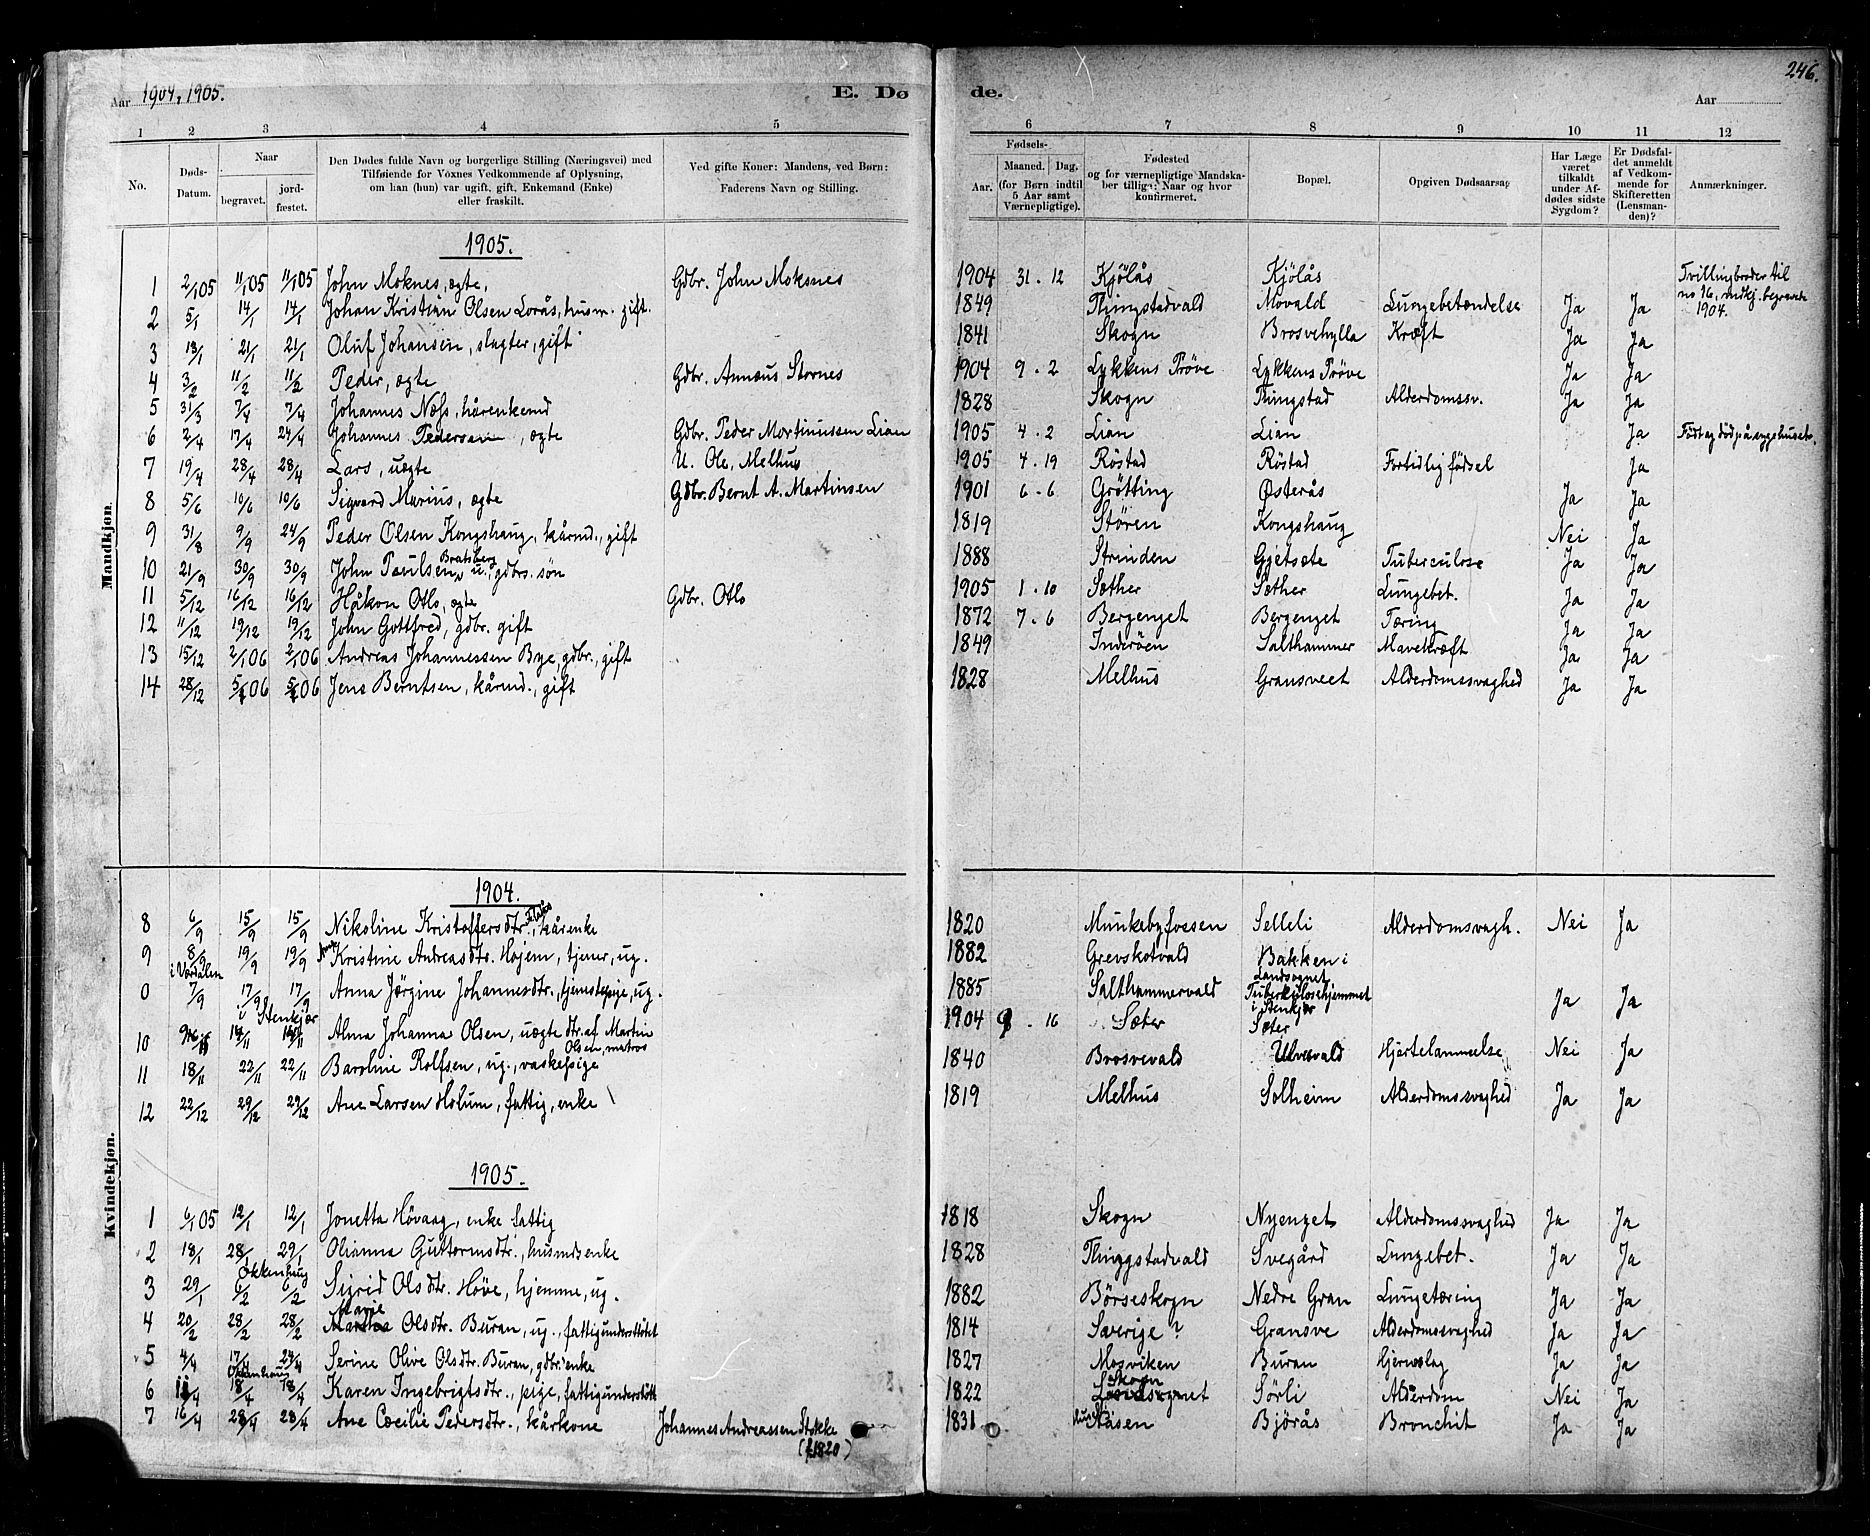 Aar 1904, 1905.
E. Dø
de.
Aar
246.
1 2 3 4 5
6 7 8 9 10 11 12
No.
Døds-Datum.
Naar
begravet.
jord-fæstet.
Den Dødes fulde Navn og borgerlige Stilling (Næringsvei) med
Tilføiende for Voxnes Vedkommende af Oplysning,
om han (hun) var ugift, gift, Enkemand (Enke)
eller fraskilt.
Ved gifte Koner: Mandens, ved Børn:
Faderens Navn og Stilling.
Fødsels-
Aar.
Maaned. Dag.
(for Børn indtil
5 Aar samt
Værnepligtige).
Fødested
og for værnepligtige Mandska-
ber tillige: Naar og hvor
konfirmeret.
Bopæl.
Opgiven Dødsaarsag
Har Læge
været
tilkaldt
under Af-
dødes sidste
Sygdom?
Er Dødsfal-
det anmeldt
af Vedkom-
mende for
Skifteretten
(Lensman-
den)?
Anmærkninger.
Mandkjøn.
1905.
1 2/1 05 11/1 05 11/1 05 John Moknes, ægte, Gdbr. John Moksnes 1904 31 . 12 Kjölås Kjölås Tvillingbroder til no 16, mdkj. begravede 1904.
2 5/1 14/1 14/1 Johan Kristian Olsen Lorås, husm. gift. 1849 Thingstadvald Movald Lungebetændelse Ja Ja
3 13/1 21/1 21/1 Oluf Johansen, slagter, gift 1841 Skogn Brosvehylla Kræft Ja Ja
4 3/2 11/2 11/2 Peder, ægte Gdbr. Annæus Stornes 1904 9 . 2 Lykkens Prøve Lykkens Prøve Ja Ja
5 31/3 7/4 7/4 Johannes Næss, kårenkemd 1828 Skogn Thingstad Alderdomssv. Ja Ja
6 2/4 17/4 24/4 Johannes Pedersen, ægte Gdbr. Peder Martinussen Lian 1905 4 . 2 Lian Lian Ja Født og død på sygehuset.
7 19/4 28/4 28/4 Lars, uægte U. Ole, Melhus 1905 4 . 19 Röstad Röstad Fortidlig födsel Ja
8 5/6 10/6 10/6 Sigvard Marius, ægte Gdbr. Bernt A. Martinsen 1901 6 . 6 Grötting Østerås Ja Ja
9 31/8 9/9 24/9 Peder Olsen Kongshaug, kårmd., gift 1819 Stören Kongshaug Nei Ja
10 21/9 30/9 30/9 John Paulsen Bratsberg u. gdbrs. søn 1888 Strinden Gjetsete Tuberculose Ja Ja
11 5/12 16/12 16/12 Håkon Otlo, ægte Gdbr. Otlo 1905 1 . 10 Sæther Sæther Lungebet. Ja Ja
12 11/12 19/12 19/12 John Gottfred, gdbr. gift 1872 7 . 6 Bergenget Bergenget Tæring Ja Ja
13 15/12 2/1 06 2/1 06 Andreas Johannessen Bye, gdbr., gift 1849 Inderöen Salthammer Mavekræft Ja Ja
14 28/12 5/1 06 5/1 06 Jens Berntsen, kårmd., gift 1828 Melhus Gransveet Alderdomssvaghed Ja Ja
Kvindekjøn.
1904.
8 6/9 15/9 15/9 Nikoline Kristoffersdtr., kårenke 1820 Munkebyfossen Selleli Alderdomsvagh. Nei Ja
9 8/9 i Værdalen 19/9 19/9 Kristine Andreasdtr. Højem, tjener, ug. 1882 Grevskotvald Bakken i Landsognet
0 7/9 17/9 i Stenkjær 17/9 Anna Jørgine Johannesdtr., tjenestepige, ug. 1885 Salthammervald Tuberkulosehjemmet i Stenkjær Ja Ja
10 14/11 Alma Johanna Olsen, uægte dtr. af Martin Olsen, matros 1904 9 . 16 Sæter Sæter
11 18/11 22/11 22/11 Baroline Rolfsen, ug., vaskepige 1840 Brosvevald Ulvesvald Hjertelammelse Nei Ja
12 22/12 29/12 29/12 Ane Larsen Holum, fattig, enke 1819 Melhus Solheim Alderdomssvaghed Ja Ja
1905.
1 6/1 05 12/1 12/1 Jonetta Hövaag, enke fattig 1818 Skogn Nyenget Alderdomssvaghed Ja Ja
2 18/1 28/1 29/1 Olianna Guttormsdtr., husmdsenke 1828 Thinggstadvald Svegård Lungebet. Ja Ja
3 29/1 Okkenhaug 6/2 6/2 Sigrid Olsdtr. Höve, hjemme, ug. 1882 Börseskogn Nedre Gran Lungetæring Ja Ja
4 20/2 28/2 28/2 Marie Olsdtr. Buran, ug., fattigunderstöttet 1814 Sverige? Gransve Alderdomssvaghed Ja Ja
5 4/4 17/4 24/4 Serine Olive Olsdtr. Buran, gdbr.enke 1827 Mosviken Buran Hjerneslag Ja Ja
6 11/4 Okkenhaug 18/4 18/4 Karen Ingebrigtsdtr., pige, fattigunderstött 1822 Skogn Sörli Alderdom Nei Ja
7 16/4 28/4 28/4 Ane Cæcilie Pedersdtr., kårkone Johannes Andreassen Stokke (f. 1820) 1831 Aasen Björås Bronchit Ja Ja